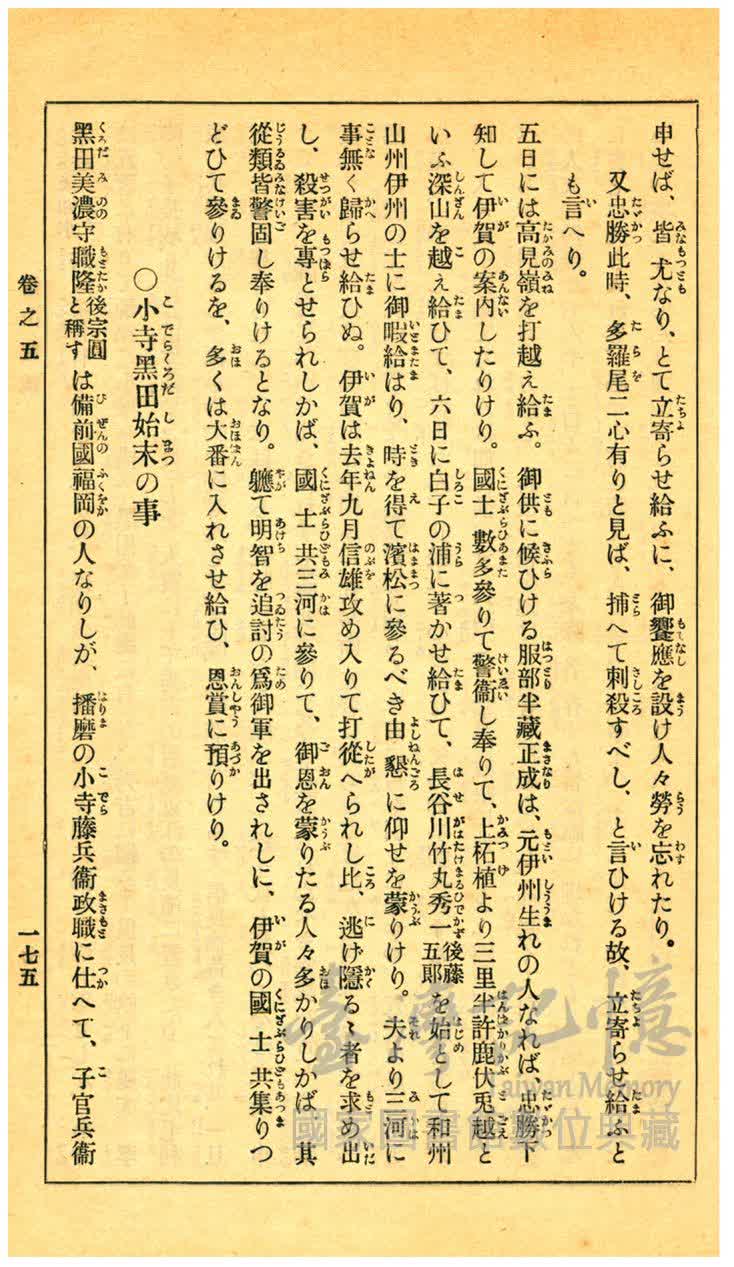 申せば、皆尤なり、とて立寄らせ給ふに、御饗應を設け人々勞を忘れたり。
又忠勝此時、多羅尾二心有りと見ば、捕へて刺殺すべし、と言ひける故、立寄らせ給ふと
も言へり。
五日には高見嶺を打越え給ふ。御供に候ひける服部半藏正成は、元伊州生れの人なれば、忠勝下
知して伊賀の案内したりけり。國士數多參りて警衞し奉りて、上柘植より三里半許鹿伏兎越と
いふ深山を越え給ひて、六日に白子の浦に著かせ給ひて、長谷川竹丸秀一後藤五郎を始として和州
山州伊州の士に御暇給はり、時を得て濱松に參るべき由懇に仰せを蒙りけり。夫より三河に
事無く歸らせ給ひぬ。伊賀は去年九月信雄攻め入りて打從へられし比、逃げ隱るゝ者を求め出
し、殺害を專とせられしかば、國士共三河に參りて、御恩を蒙りたる人々多かりしかば、其
從類皆警固し奉りけるとなり。軈て明智を追討の爲御軍を出されしに、伊賀の國士共集りつ
どひて參りけるを、多くは大番に入れさせ給ひ、恩賞に預りけり。
○小寺黑田始末の事
黑田美濃守職隆後宗圓と稱すは備前國福岡の人なりしが、播磨の小寺藤兵衞政職に仕へて、子官兵衞
卷之五
一七五
臺灣記憶
Taiwan Memory
國家圖書館數位典藏